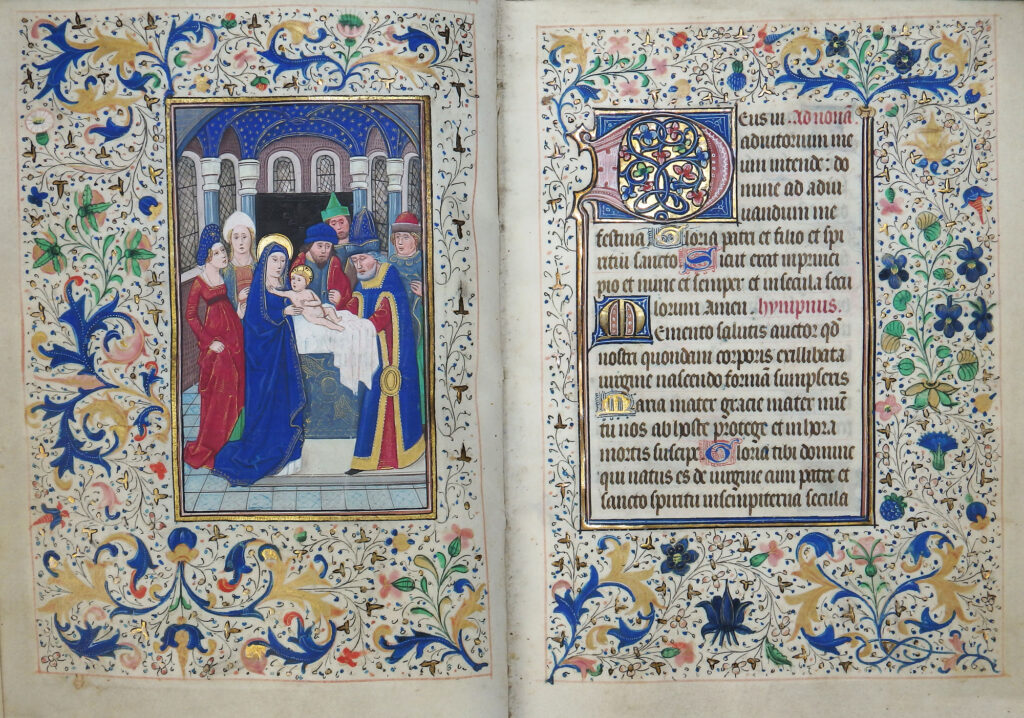 Eus in Ad nona
adiutorium me
um intende: do
mine ad adiu
uandum me
festina Gloria patri et filio et spi
ritui sancto Sicut erat in princi
pio et nunc et semper et in secula secu
lorum Amen. hympnus.
Memento salutis auctor qd
nostri quondam corporis ex illibata
uirgine nascendo formā sumpseris
Maria mater gracie mater mīe
tu nos ab hoste protege et in hora
mortis suscipe Gloria tibi domine
qui natus es de uirgine cum patre et
sancto spiritu in sempiterna secula